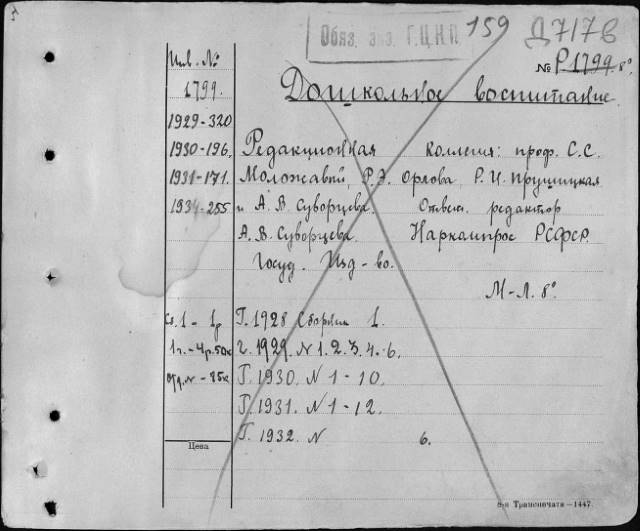 Обяз. экз. Г.Ц.К.П. 159 Д717в
Инв. № № Р1799. 8°
1799. Дошкольное воспитание.
1929-320
1930-196. Редакционная коллегия: проф. С.С.
1931-171. Моложавый, Р.Э. Орлова, Р.И. Прушицкая
1934-255 и А.В. Суворцева. Ответ. редактор
А.В. Суворцева. Наркомпрос РСФСР.
Госуд. Изд-во.
М-Л. 8°
Сб. 1 - 1р Г. 1928 Сборник 1.
1 г. - 4р. 50к Г. 1929. N 1. 2. 3. 4. 6.
отд. № - 85к Г. 1930. N 1-10.
Г. 1931. N 1-12.
Г. 1932. N 6.
Цена
Транспечати—1447.